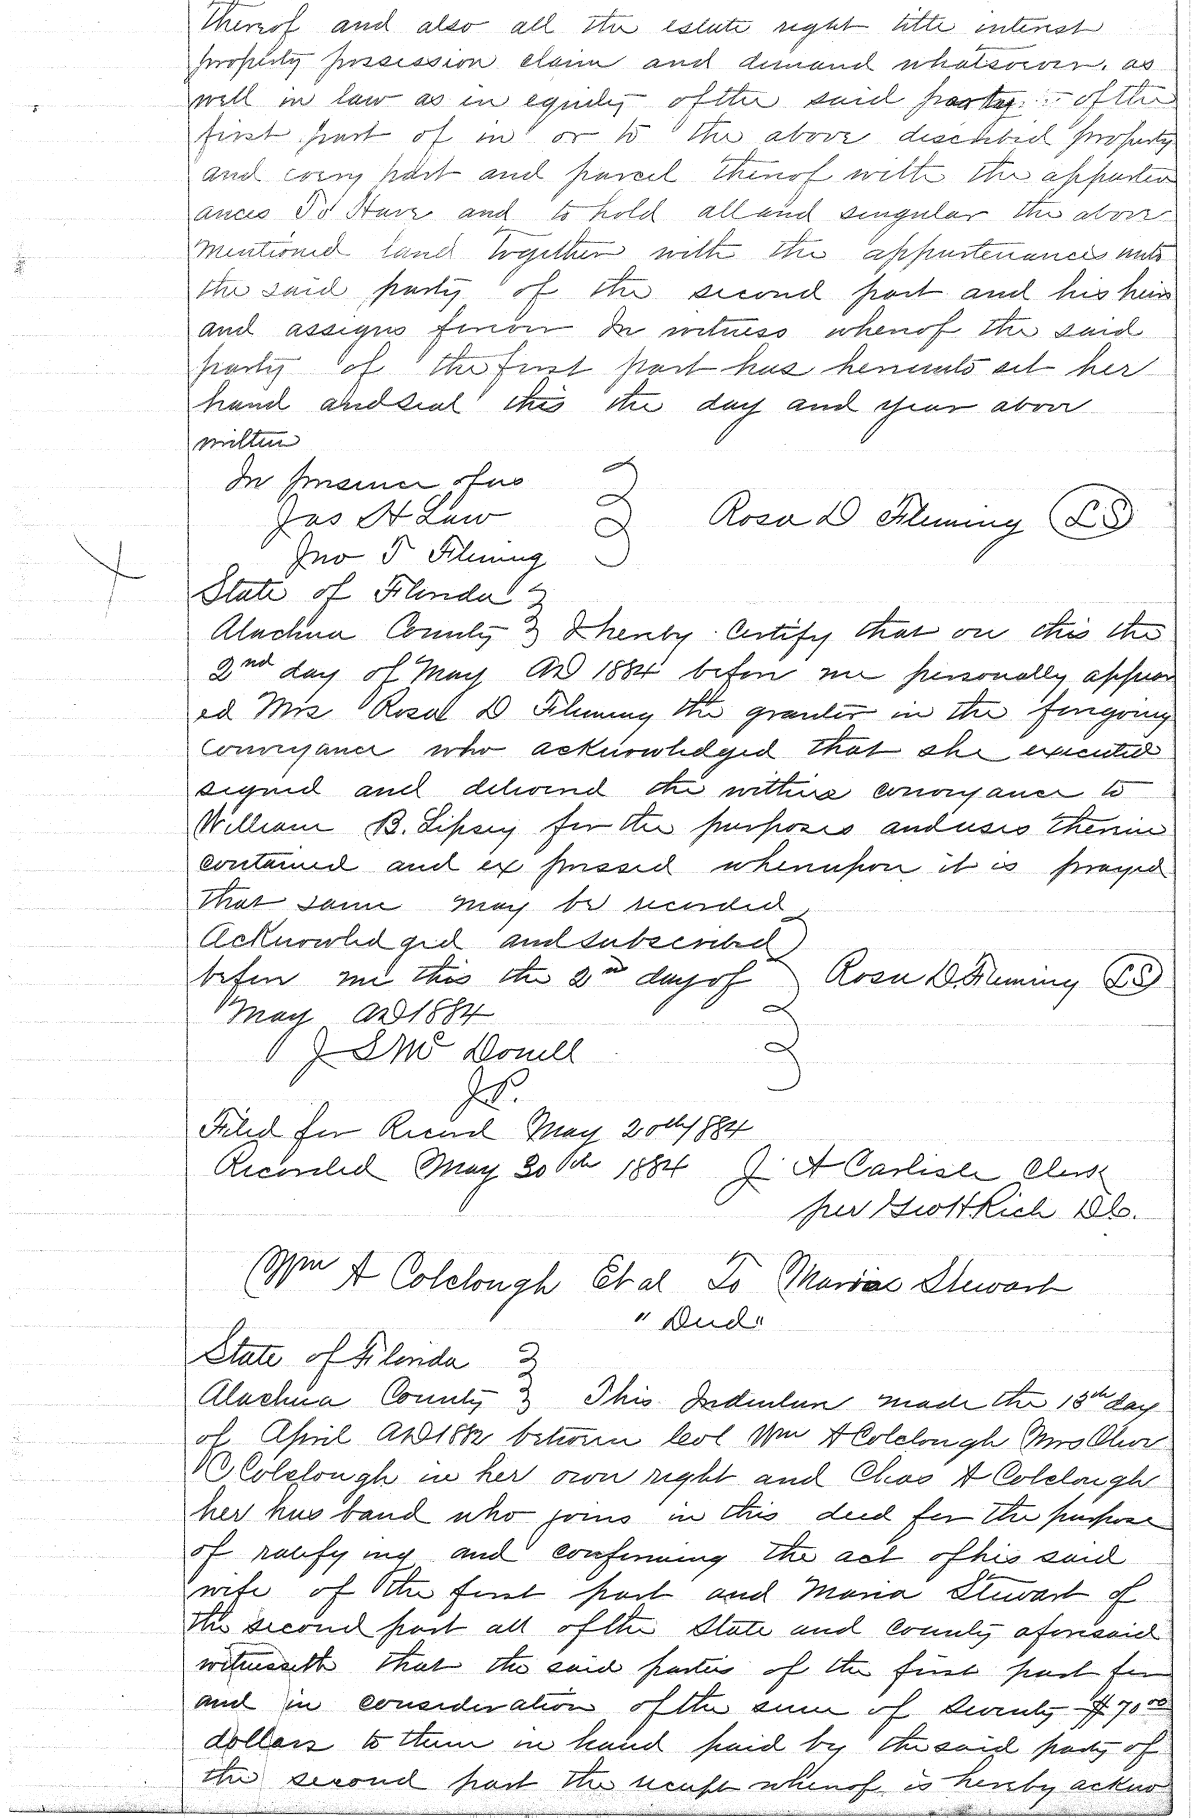 thereof and also all the estate right title interest
property possession claim and demand whatsoever. as
well in law as in equity of the said party of the
first part of in or to the above described property
and every part and parcel thereof with the apparten
ances To Have and to hold all and singular the above
mentioned land together with the appurtenances unto
the said party of the second part and his heirs
and assigns forever In witness whereof the said
party of the first part has hereunto set her
hand and seal this the day and year above
written
In presence of us
Jas H Law
Rosa D Fleming LS
Jno T Fleming
State of Florida
Alachua County I hereby certify that on this the
2nd day of May AD 1884 before me personally appear
ed Mrs Rosa D Fleming the grantor in the foregoing
conveyance who acknowledged that she executed
signed and delivered the within conveyance to
William B. Lipsey for the purposes and uses therein
contained and ex pressed whereupon it is prayed
that same may be recorded
Acknowledged and subscribed
before me this the 2nd day of Rosa D. Fleming LS
May AD 1884
J S Mc Donell
J.P.
Filed for Record May 20th 1884
Recorded May 30th 1884 J. A Carlisle Clerk
per Geo H Rich D.C.
Wm A Colclough Et al To Maria Stewart
"Deed"
State of Florida
Alachua County This Indenture made the 13th day
of April AD 1882 between Wm A Colclough Mrs
C Colclough in her own right and Chas A Colclough
her hus band who joins in this deed for the purpose
of ratify ing and confirming the act of his said
wife of the first part and Maria Stewart of
the second part all of the State and County aforesaid
witnesseth that the said parties of the first part for
and in consideration of the sum of Seventy $70.00
dollars to them in hand paid by the said party of
the second part the receipt whereof is hereby acknow